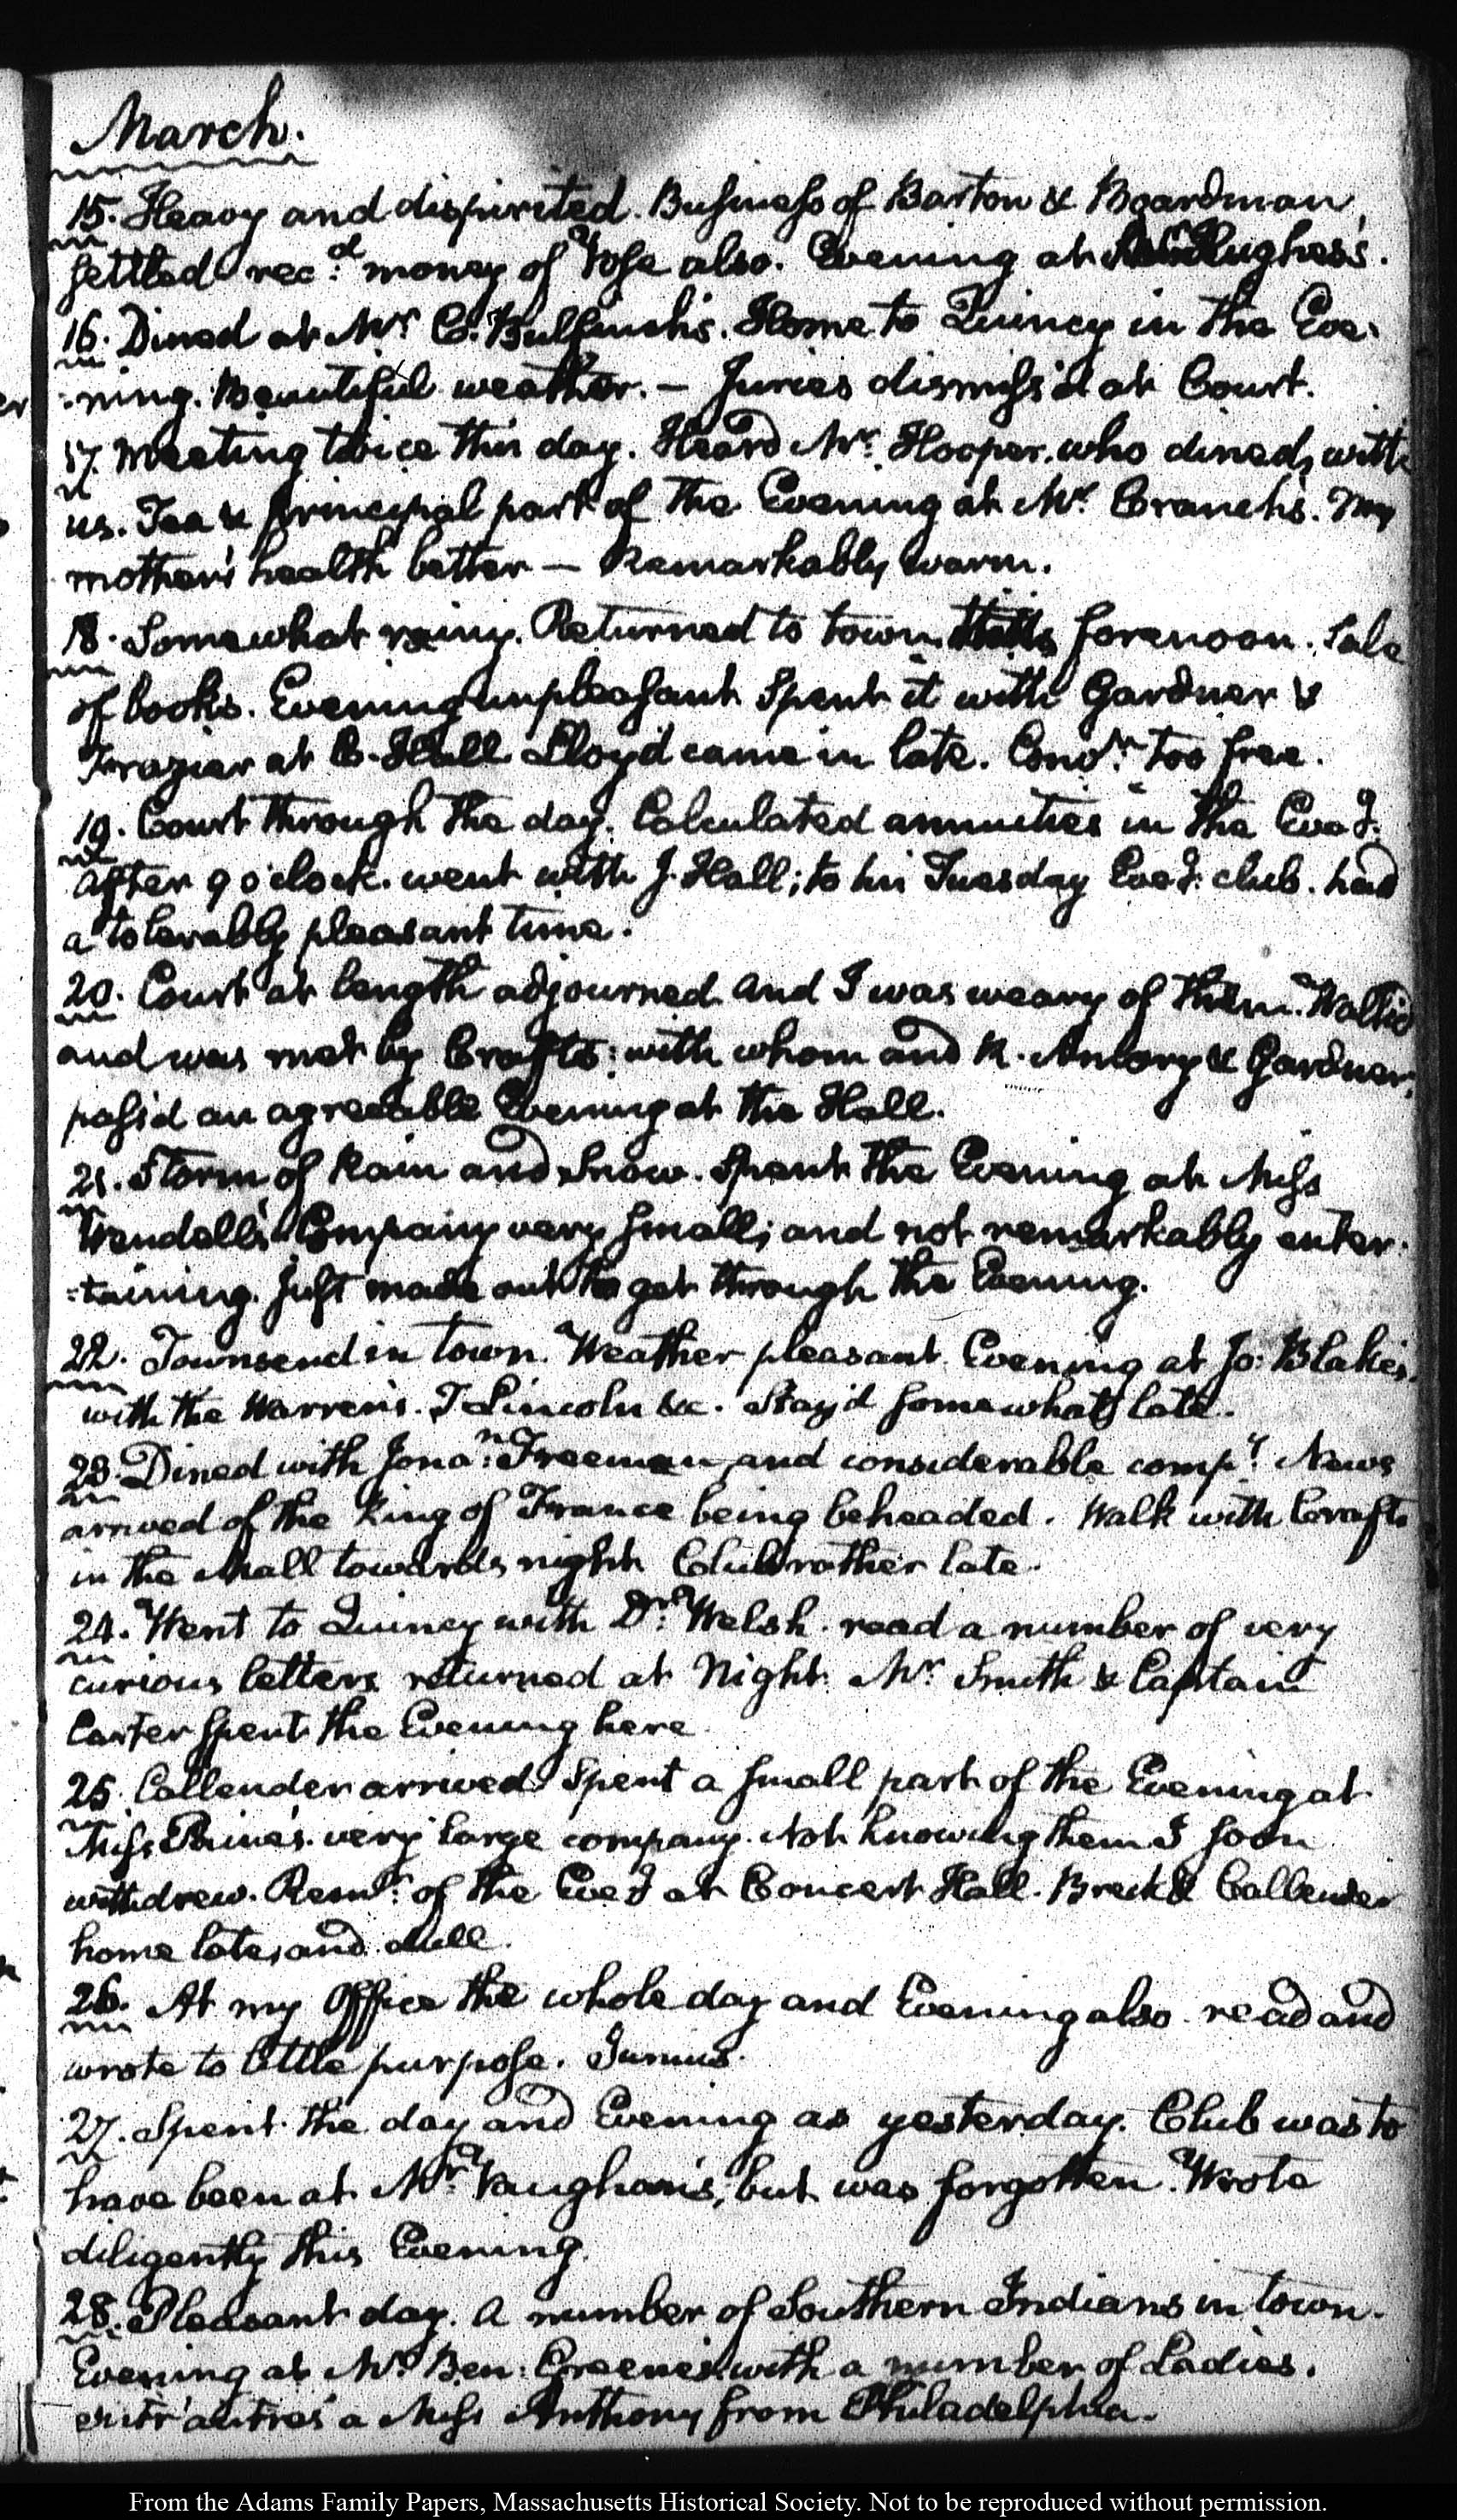 March.
15. Heavy and dispirited. Business of Barton & Boardman
settled rec:d money of Vose also. Evening at Hughes's.
16. Dined at Mr C. Bulfinch's. Home to Quincy in the Eve-
-ning. Beautiful weather. — Juries dismiss'd at Court.
17. Meeting twice this day. Heard Mr. Hooper. who dined, with
us. Tea & principal part of the Evening at Mr. Cranch's. My
mother's health better — Remarkably warm.
18. Somewhat rainy. Returned to town this forenoon. Sale
of books. Evening unpleasant Spent it with Gardner &
Frazier at C. Hall Lloyd came in late. Convn: too free.
19. Court through the day. Calculated annuities in the Eveg.
After 9 o'clock. went with J. Hall; to his Tuesday Eveg: club. had
a tolerably pleasant time.
20. Court at length adjourned and I was weary of them. Walk'd
and was met by Crafts: with whom and R. Amory & Gardner,
pass'd an agreeable Evening at the Hall.
21. Storm of Rain and Snow. Spent the Evening at Miss
Wendell's Company very small; and not remarkably enter-
-taining. Just made out to get through the Evening.
22. Townsend in town. Weather pleasant. Evening at Jo: Blake's,
with the Warren's. T Lincoln &c. Stay'd somewhat late.
23. Dined with Jona:n Freeman and considerable compy. News
arrived of the King of France being beheaded. Walk with Crafts
in the Mall towards night. Club rather late.
24. Went to Quincy with Dr: Welsh. read a number of very
curious letters returned at Night. Mr Smith & Captain
Carter spent the Evening here
25. Callender arrived. Spent a small part of the Evening at
Miss Paine's. very large company. Not knowing them I soon
withdrew. Remr: of the Eveg at Concert Hall. Breck & Callender
home late, and dull.
26. At my Office the whole day and Evening also. read and
wrote to little purpose. Junius.
27. Spent the day and Evening as yesterday. Club was to
have been at Mr: Vaughan's, but was forgotten. Wrote
diligently this Evening.
28. Pleasant day. A number of Southern Indians in town.
Evening at Mr. Ben: Greene's with a number of Ladies.
entr'autres a Miss Anthony from Philadelphia.
From the Adams Family Papers, Massachusetts Historical Society. Not to be reproduced without permission.